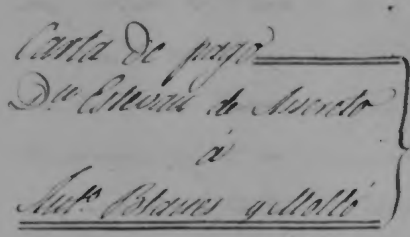 Carta de pago
Dn. Estevan de
á
Anto. Blanes y Molló